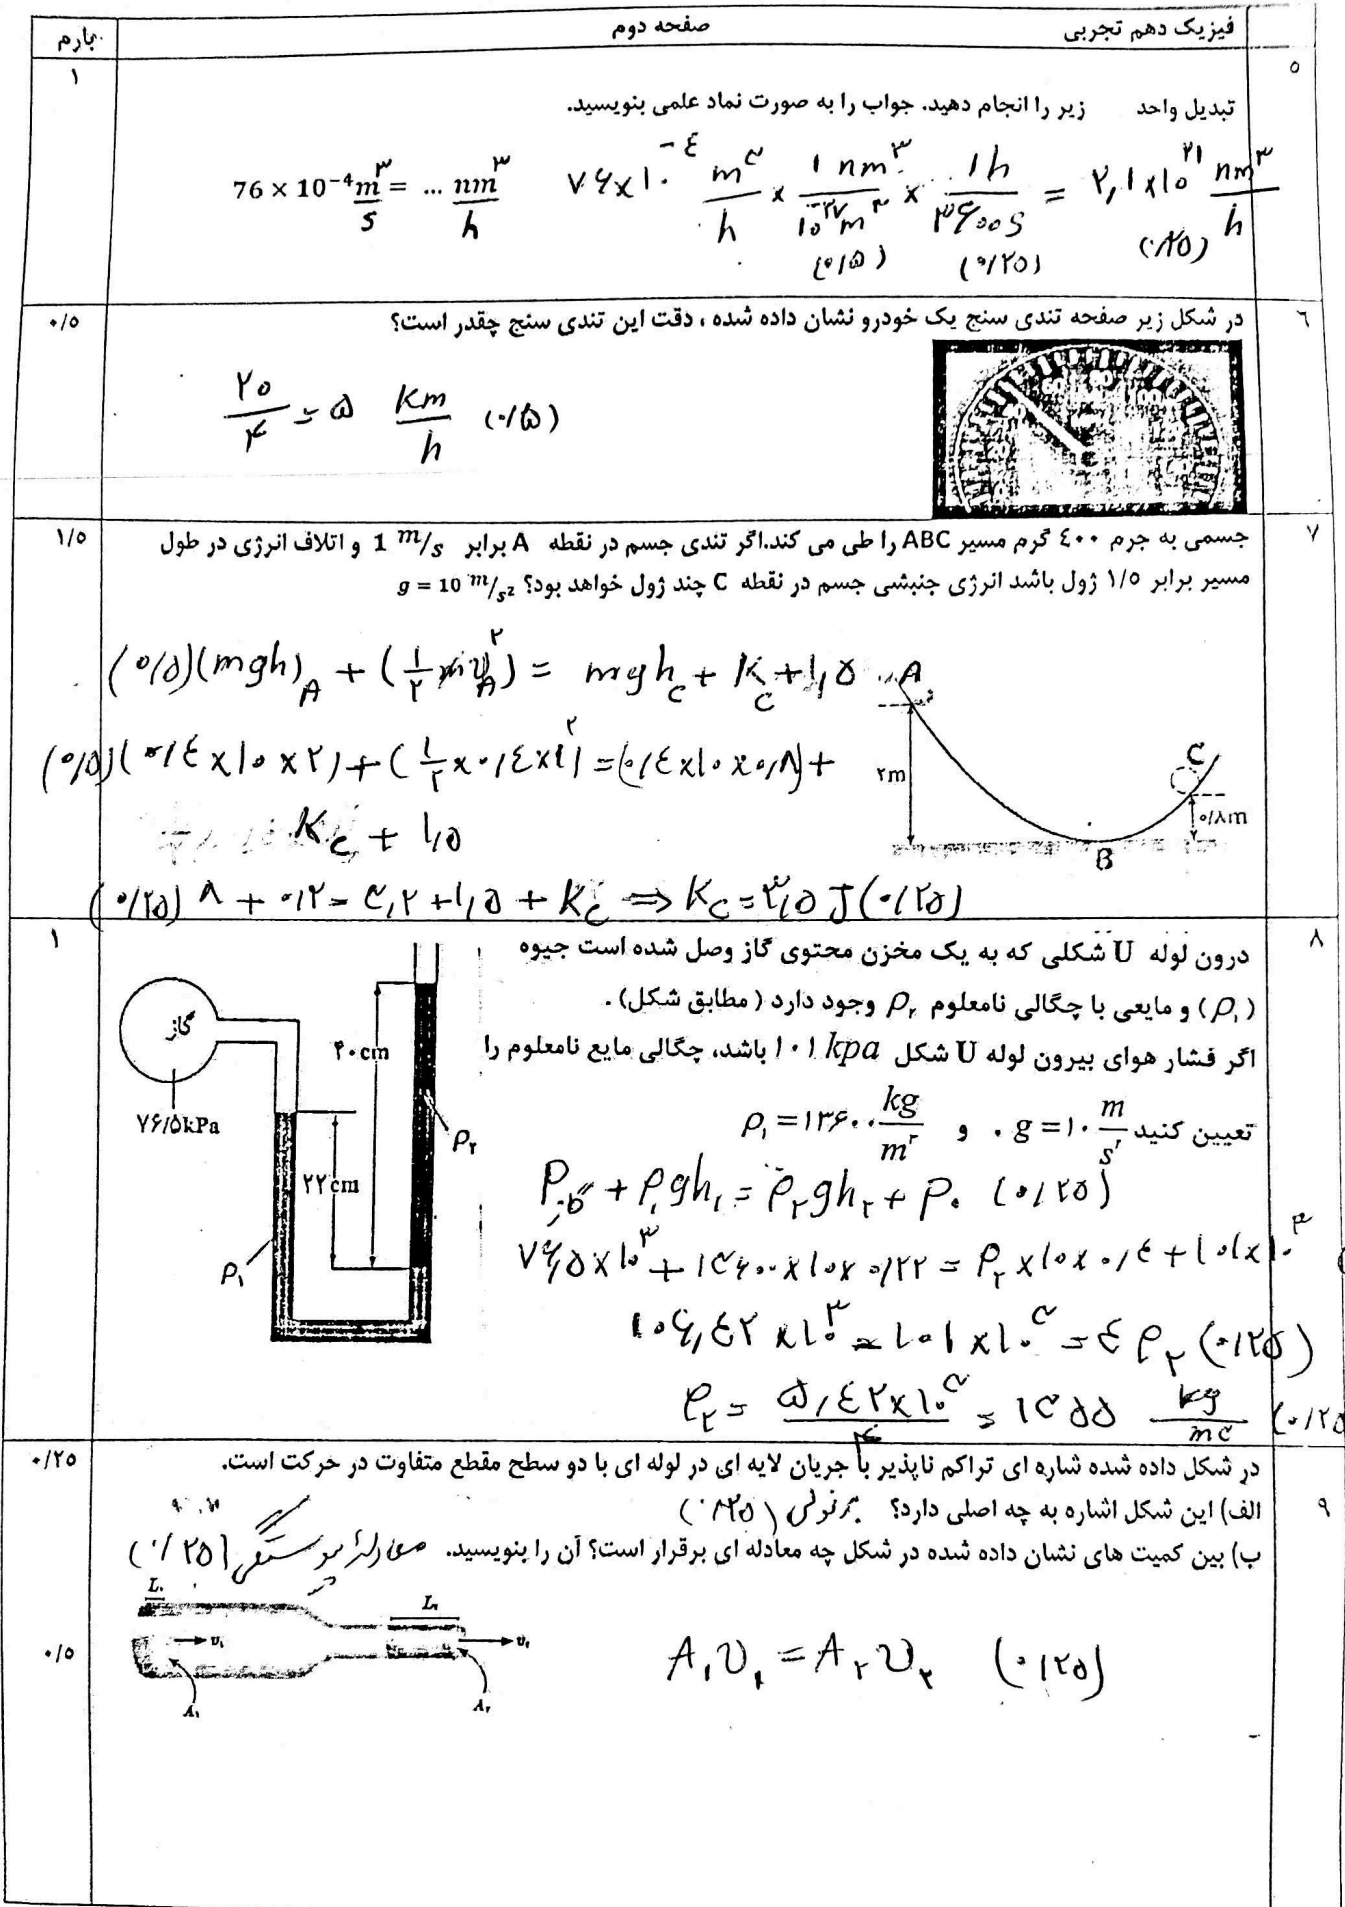 فیزیک دهم تجربی صفحه دوم بارم
۵ ۱
تبدیل واحد زیر را انجام دهید. جواب را به صورت نماد علمی بنویسید.
76 × 10⁻⁴ m³/s = ... nm³/h
۷۶×۱۰⁻⁴ m³/h × ۱ nm³/۱۰⁻²⁷ m³ × ۱h/۳۶۰۰s = ۲٫۱×۱۰²¹ nm³/h
(۰/۵) (۰/۲۵) (۰/۲۵)
۶ ۰/۵
در شکل زیر صفحه تندی سنج یک خودرو نشان داده شده ، دقت این تندی سنج چقدر است؟
۲۰/۴ = ۵ km/h (۰/۵)
۷ ۱/۵
جسمی به جرم ۴۰۰ گرم مسیر ABC را طی می کند.اگر تندی جسم در نقطه A برابر 1 m/s و اتلاف انرژی در طول
مسیر برابر ۱/۵ ژول باشد انرژی جنبشی جسم در نقطه C چند ژول خواهد بود؟ g = 10 m/s²
(۰/۵)(mgh)A + (۱/۲ mv²A) = mghC + KC + ۱٫۵
(۰/۵)(۰/٤×۱۰×۲)+(۱/۲×۰/٤×۱²)=(۰/٤×۱۰×۰/۸)+
KC + ۱٫۵
(۰/۲۵) ۸ + ۰/۲ = ۳٫۲ + ۱٫۵ + KC ⇒ KC = ۳٫۵ J (۰/۲۵)
A
C
۲m
۰/۸m
B
۸ ۱
درون لوله U شکلی که به یک مخزن محتوی گاز وصل شده است جیوه
(ρ₁) و مایعی با چگالی نامعلوم ρ₂ وجود دارد ( مطابق شکل) .
اگر فشار هوای بیرون لوله U شکل ۱۰۱ kpa باشد، چگالی مایع نامعلوم را
تعیین کنید g = ۱۰ m/s² . و ρ₁ = ۱۳۶۰۰ kg/m³
گاز
۷۶/۵kPa
۴۰cm
۲۲cm
ρ₂
ρ₁
Pگاز + ρ₁gh₁ = ρ₂gh₂ + P₀ (۰/۲۵)
۷۶٫۵×۱۰³ + ۱۳۶۰۰×۱۰×۰/۲۲ = ρ₂×۱۰×۰/٤ + ۱۰۱×۱۰³
۱۰۶٫٤۲×۱۰³ - ۱۰۱×۱۰³ = ٤ρ₂ (۰/۲۵)
ρ₂ = ۵٫٤۲×۱۰³/۴ = ۱۳۵۵ kg/m³ (۰/۲۵
۹ ۰/۲۵
در شکل داده شده شاره ای تراکم ناپذیر با جریان لایه ای در لوله ای با دو سطح مقطع متفاوت در حرکت است.
الف) این شکل اشاره به چه اصلی دارد؟ برنولی (۰/۲۵)
ب) بین کمیت های نشان داده شده در شکل چه معادله ای برقرار است؟ آن را بنویسید. معادلهٔ پیوستگی (۰/۲۵)
۰/۵
L₁
L₂
v₁
v₂
A₁
A₂
A₁v₁ = A₂v₂ (۰/۲۵)